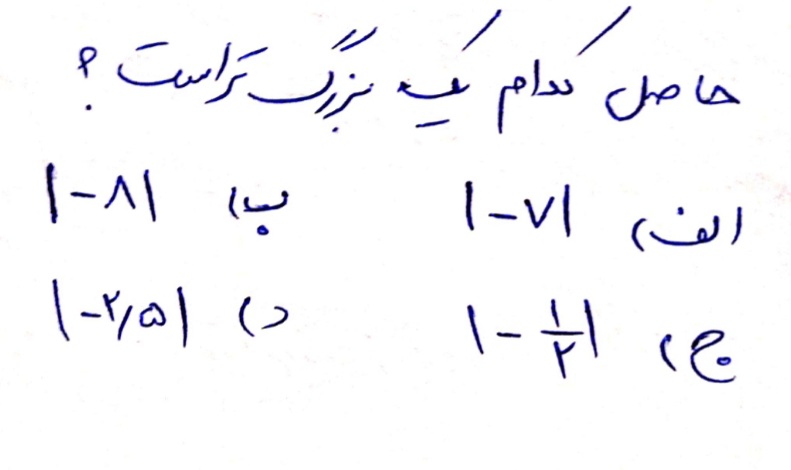 حاصل کدام یک بزرگ تر است ؟
الف) |-۷| ب) |-۸|
ج) |-۱/۲| د) |-۲٫۵|